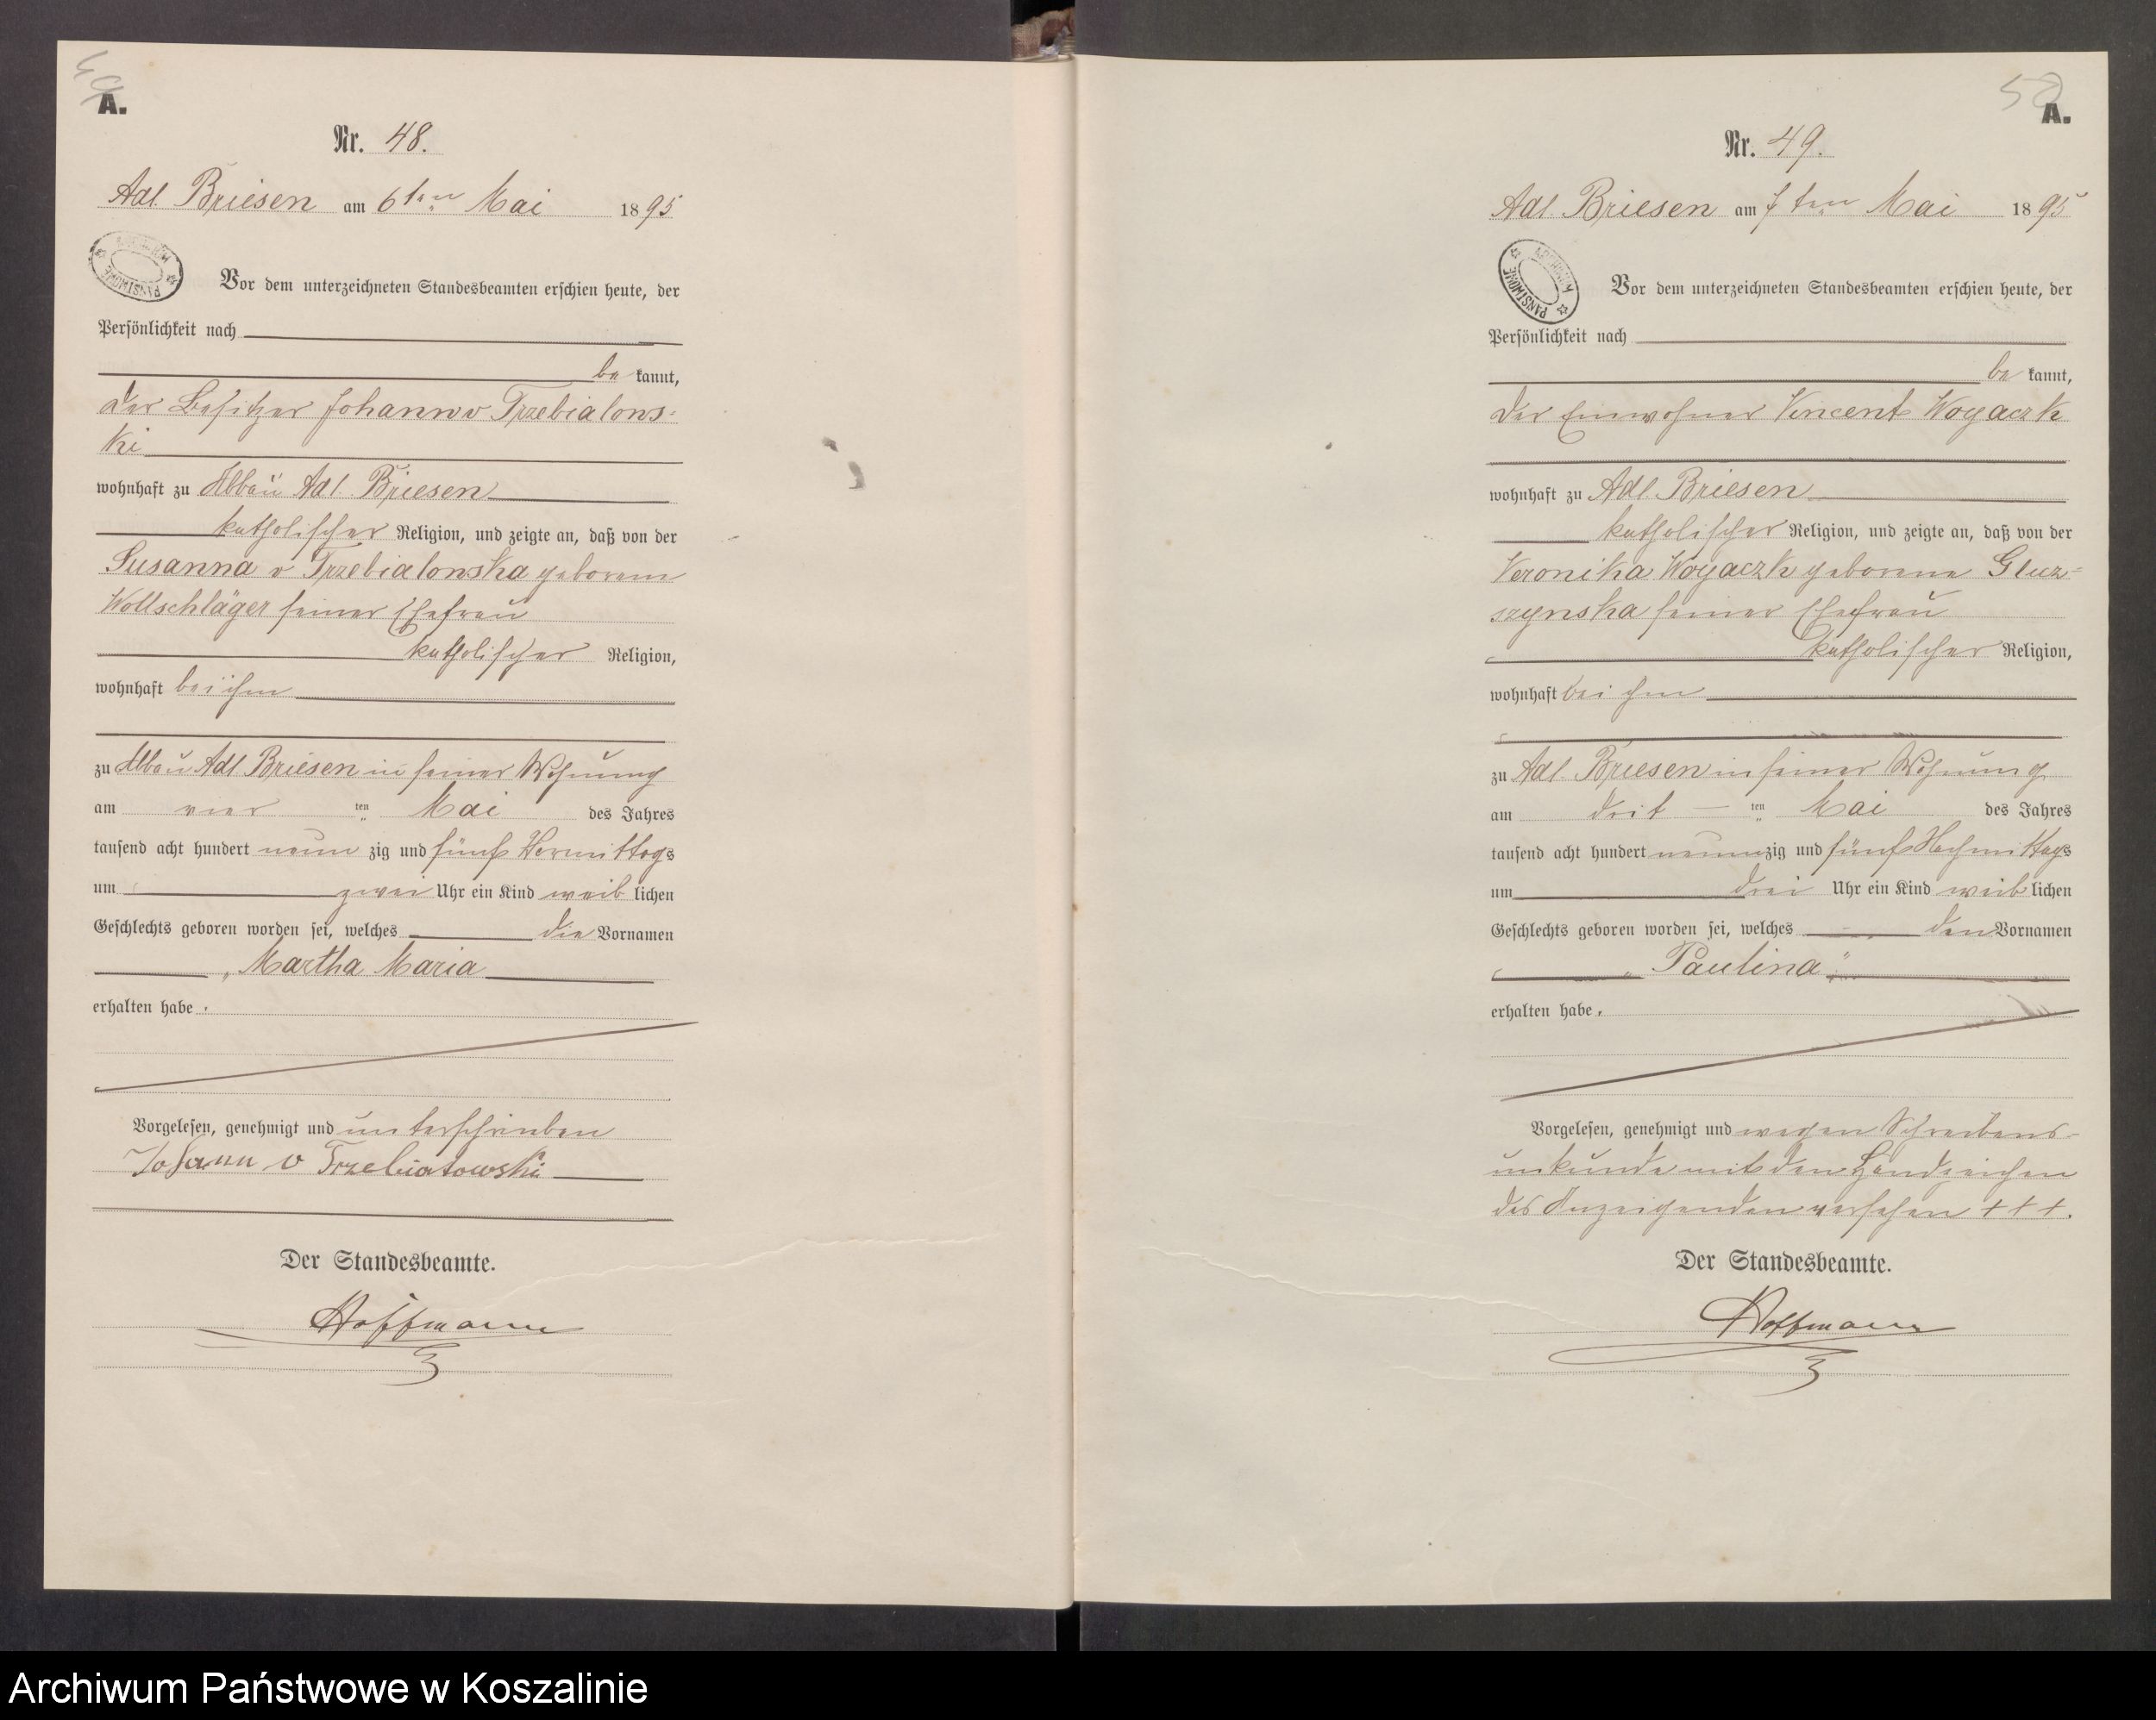 49
A.
Nr. 48.
Adl. Briesen am 6ten Mai 1895
ARCHIWUM PAŃSTWOWE
Vor dem unterzeichneten Standesbeamten erschien heute, der
Persönlichkeit nach
be kannt,
der Besitzer Johann v Trzebialows-
ki
wohnhaft zu Abbau Adl. Briesen
katholischer Religion, und zeigte an, daß von der
Susanna v Trzebialowska geborenen
Wollschläger seiner Ehefrau
katholischer Religion,
wohnhaft bei ihm
zu Abbau Adl. Briesen in seiner Wohnung
am vier ten Mai des Jahres
tausend acht hundert neun zig und fünf Vormittags
um zwei Uhr ein Kind weib lichen
Geschlechts geboren worden sei, welches die Vornamen
„Martha Maria
erhalten habe.
Vorgelesen, genehmigt und unterschrieben
Johann v Trzebiatowski
Der Standesbeamte.
Hoffmann
50
A.
Nr. 49.
Adl. Briesen am 7ten Mai 1895
ARCHIWUM PAŃSTWOWE
Vor dem unterzeichneten Standesbeamten erschien heute, der
Persönlichkeit nach
be kannt,
der Einwohner Vincent Woyaczk
wohnhaft zu Adl. Briesen
katholischer Religion, und zeigte an, daß von der
Veronika Woyaczk geborene Glucz-
szynska seiner Ehefrau
katholischer Religion,
wohnhaft bei ihm
zu Adl. Briesen in seiner Wohnung
am drit ten Mai des Jahres
tausend acht hundert neunzig und fünf Nachmittags
um drei Uhr ein Kind weib lichen
Geschlechts geboren worden sei, welches den Vornamen
„Paulina“
erhalten habe.
Vorgelesen, genehmigt und wegen Schreibens-
unkunde mit den Handzeichen
des Anzeigenden versehen + + +.
Der Standesbeamte.
Hoffmann
Archiwum Państwowe w Koszalinie